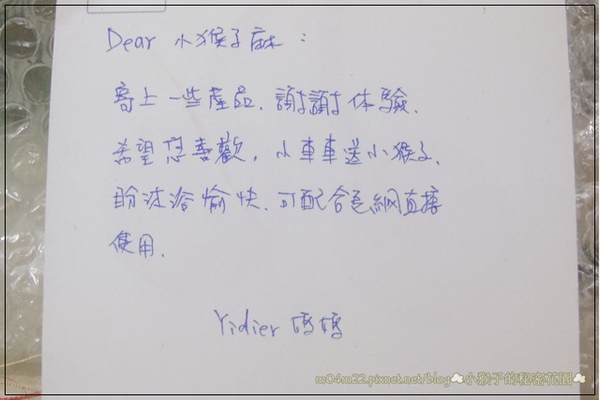 Dear 小猴子麻：
寄上一些產品，謝謝体驗，
希望您喜歡，小車車送小猴子，
盼沐浴愉快，可配合皂網直接
使用.
Yidier 媽媽
m04m22.pixnet.net/blog☁小猴子的秘密花園☁